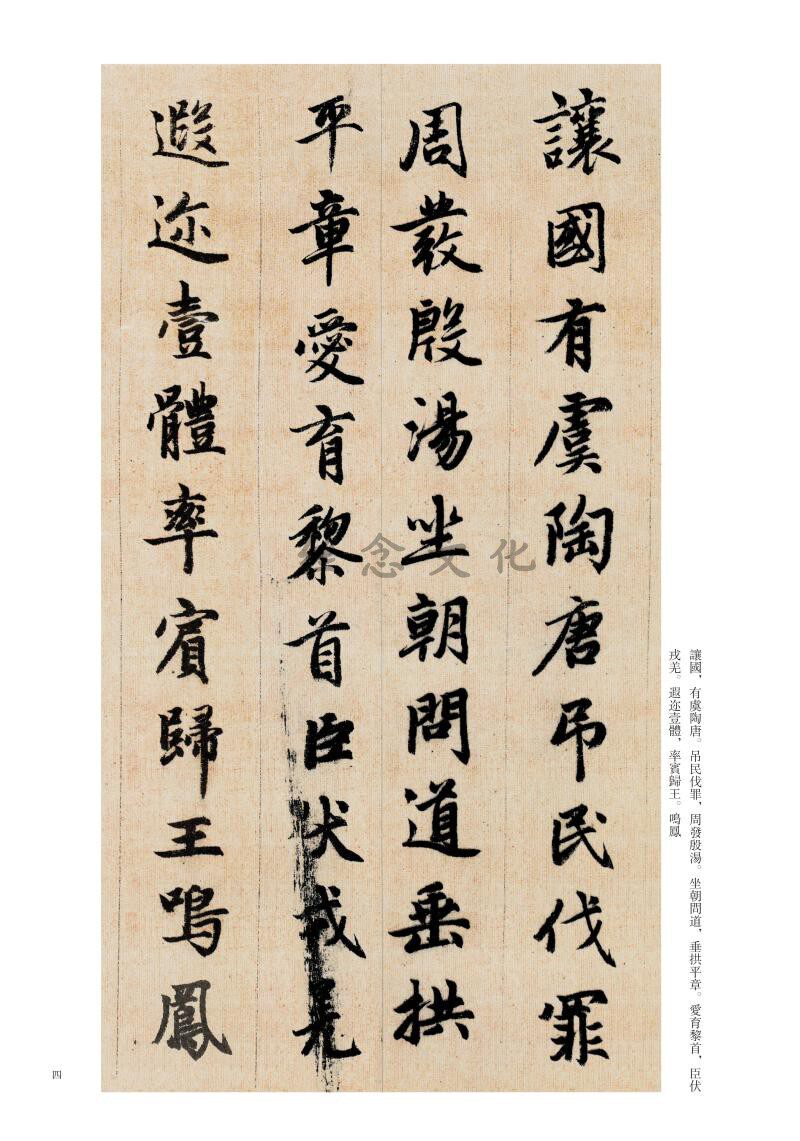 讓國有虞陶唐吊民伐罪
周發殷湯坐朝問道垂拱
平章愛育黎首臣伏戎羌
遐迩壹體率賓歸王鳴鳳
讓國，有虞陶唐。吊民伐罪，周發殷湯。坐朝問道，垂拱平章。愛育黎首，臣伏
戎羌。遐迩壹體，率賓歸王。鳴鳳
四
念文化